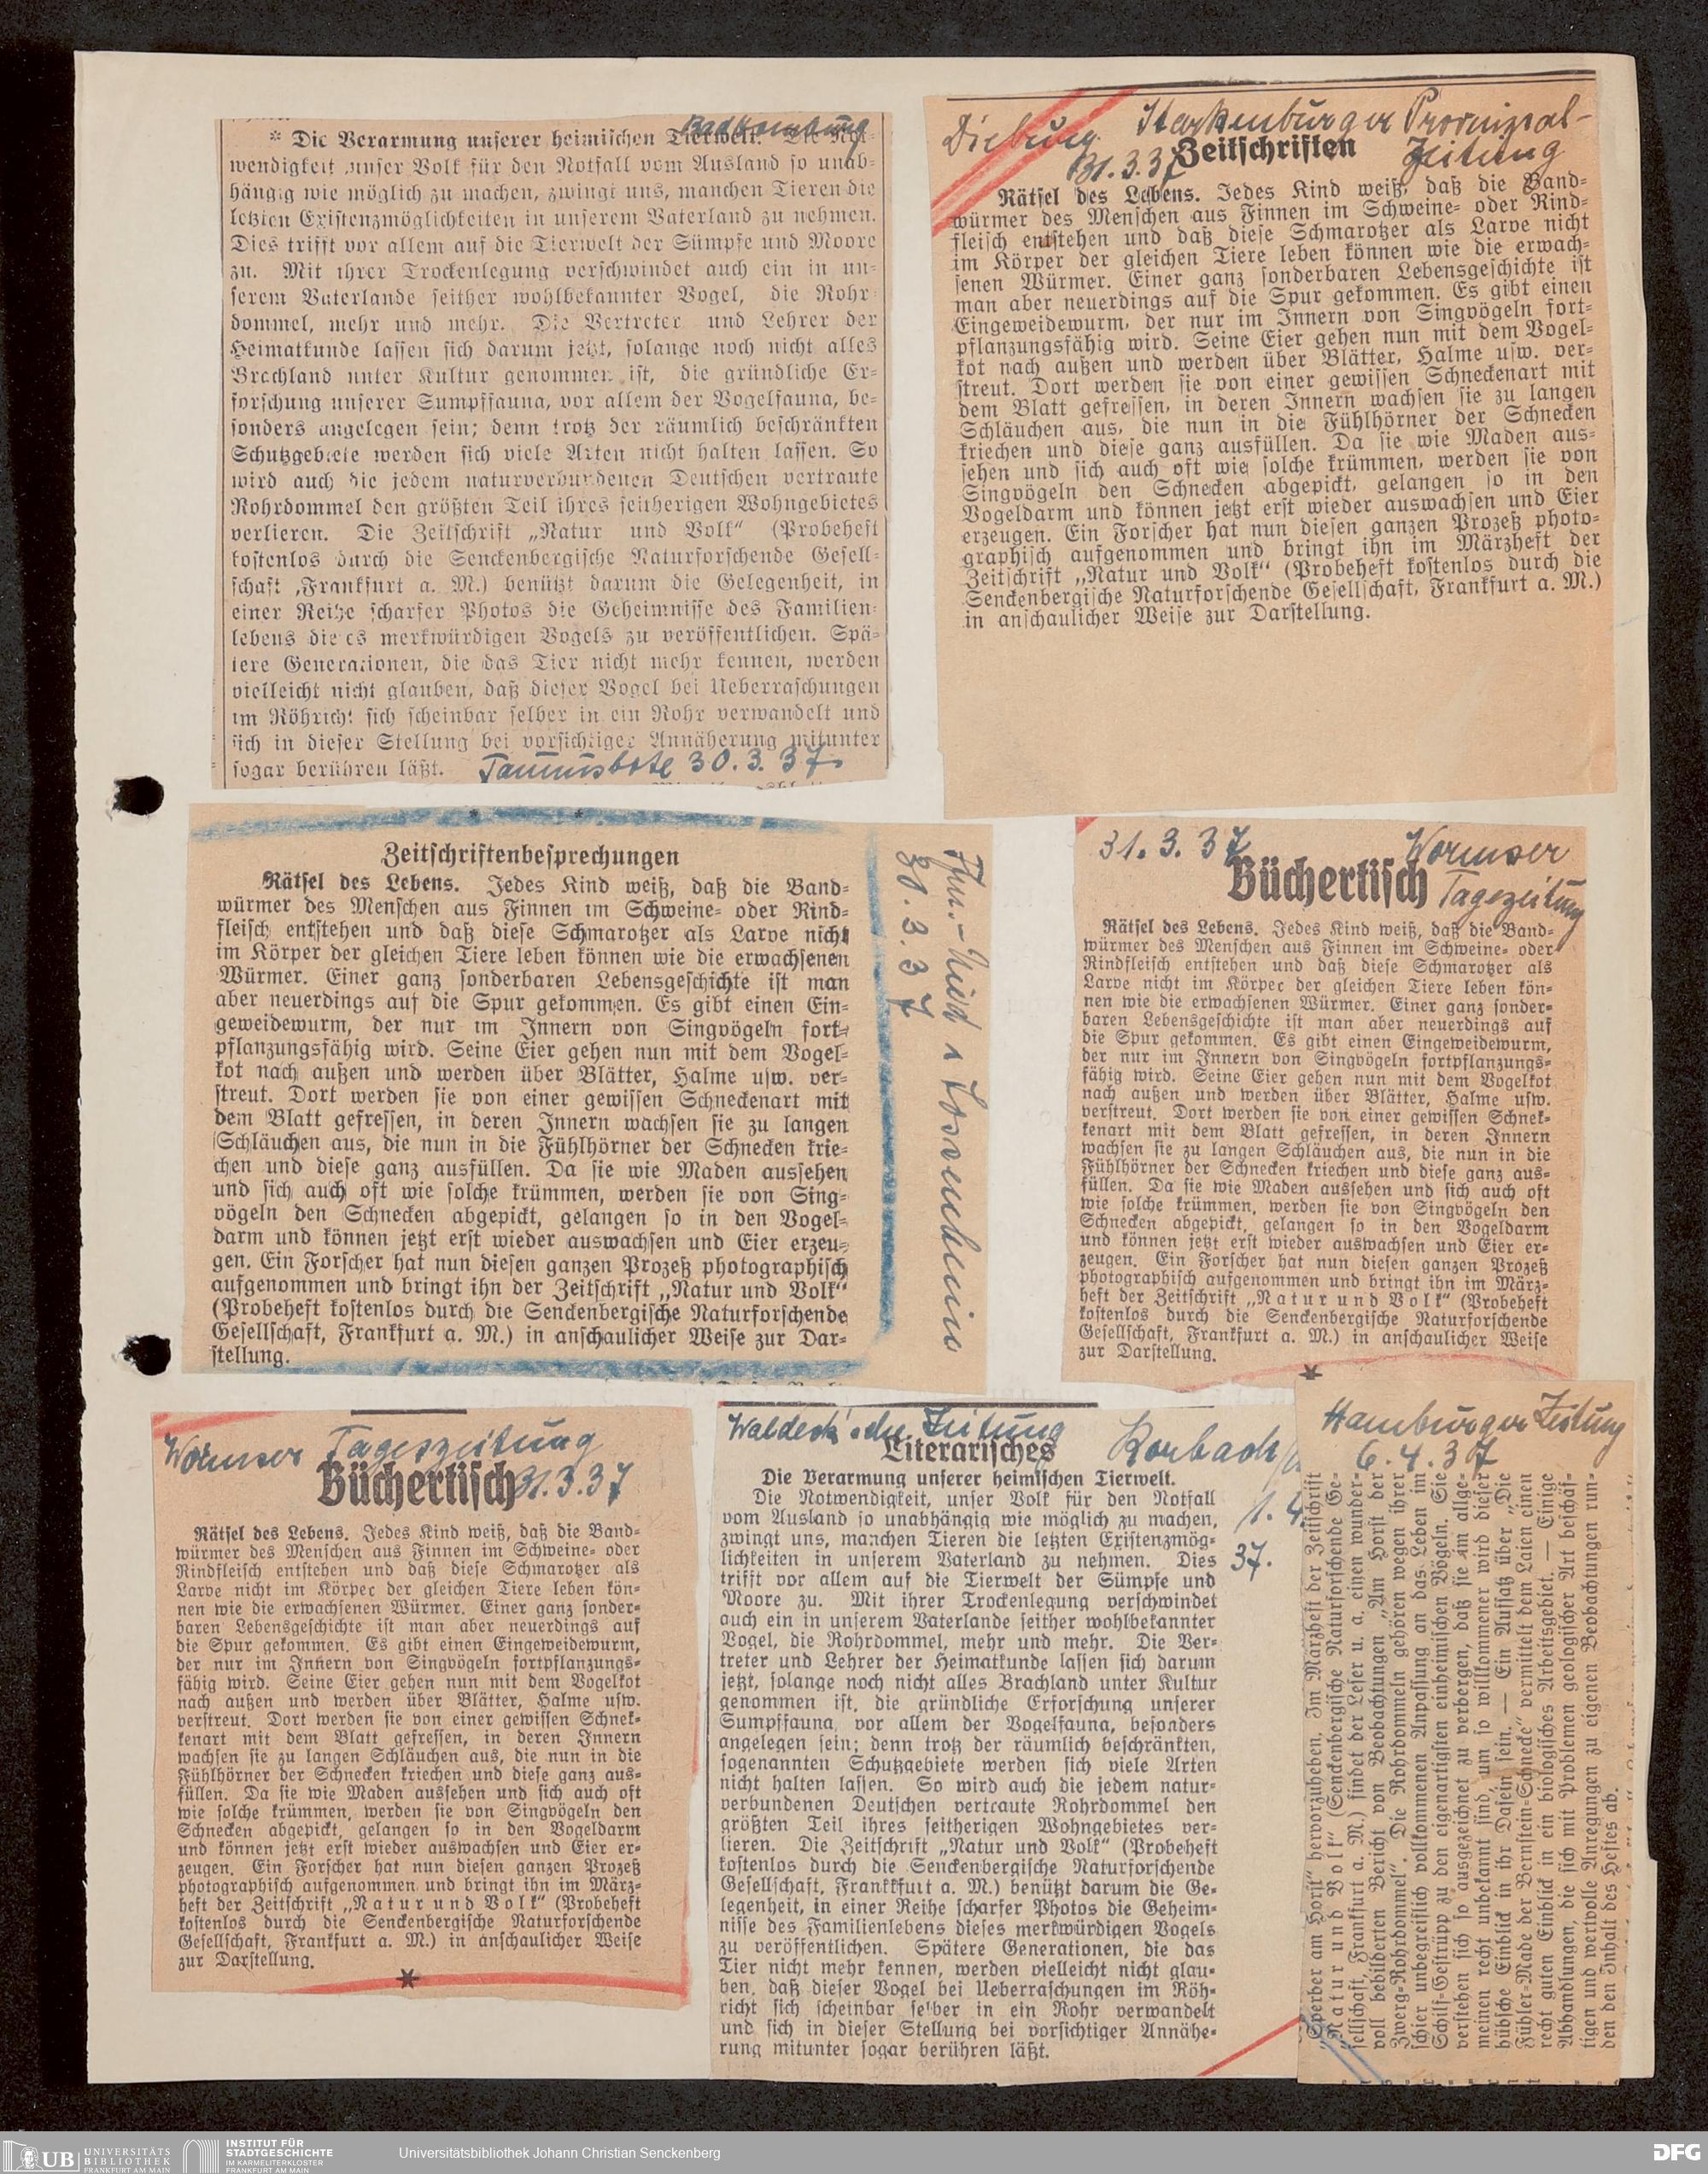 Bad Homburg
* Die Verarmung unserer heimischen Tierwelt. Die Not-
wendigkeit unser Volk für den Notfall vom Ausland so unab-
hängig wie möglich zu machen, zwingt uns, manchen Tieren die
letzten Existenzmöglichkeiten in unserem Vaterland zu nehmen.
Dies trifft vor allem auf die Tierwelt der Sümpfe und Moore
zu. Mit ihrer Trockenlegung verschwindet auch ein in un-
serem Vaterlande seither wohlbekannter Vogel, die Rohr-
dommel, mehr und mehr. Die Vertreter und Lehrer der
Heimatkunde lassen sich darum jetzt, solange noch nicht alles
Brachland unter Kultur genommen ist, die gründliche Er-
forschung unserer Sumpffauna, vor allem der Vogelfauna, be-
sonders angelegen sein; denn trotz der räumlich beschränkten
Schutzgebiete werden sich viele Arten nicht halten lassen. So
wird auch die jedem naturverbundenen Deutschen vertraute
Rohrdommel den größten Teil ihres seitherigen Wohngebietes
verlieren. Die Zeitschrift „Natur und Volk“ (Probeheft
kostenlos durch die Senckenbergische Naturforschende Gesell-
schaft, Frankfurt a. M.) benützt darum die Gelegenheit, in
einer Reihe scharfer Photos die Geheimnisse des Familien-
lebens dieses merkwürdigen Vogels zu veröffentlichen. Spä-
tere Generationen, die das Tier nicht mehr kennen, werden
vielleicht nicht glauben, daß dieser Vogel bei Ueberraschungen
im Röhricht sich scheinbar selber in ein Rohr verwandelt und
sich in dieser Stellung bei vorsichtiger Annäherung mitunter
sogar berühren läßt.
Taunusbote 30.3.37.
Dieburg Starkenburger Provinzial-
31.3.37 Zeitschriften Zeitung
Rätsel des Lebens. Jedes Kind weiß, daß die Band-
würmer des Menschen aus Finnen im Schweine- oder Rind-
fleisch entstehen und daß diese Schmarotzer als Larve nicht
im Körper der gleichen Tiere leben können wie die erwach-
senen Würmer. Einer ganz sonderbaren Lebensgeschichte ist
man aber neuerdings auf die Spur gekommen. Es gibt einen
Eingeweidewurm, der nur im Innern von Singvögeln fort-
pflanzungsfähig wird. Seine Eier gehen nun mit dem Vogel-
kot nach außen und werden über Blätter, Halme usw. ver-
streut. Dort werden sie von einer gewissen Schneckenart mit
dem Blatt gefressen, in deren Innern wachsen sie zu langen
Schläuchen aus, die nun in die Fühlhörner der Schnecken
kriechen und diese ganz ausfüllen. Da sie wie Maden aus-
sehen und sich auch oft wie solche krümmen, werden sie von
Singvögeln den Schnecken abgepickt, gelangen so in den
Vogeldarm und können jetzt erst wieder auswachsen und Eier
erzeugen. Ein Forscher hat nun diesen ganzen Prozeß photo-
graphisch aufgenommen und bringt ihn im Märzheft der
Zeitschrift „Natur und Volk“ (Probeheft kostenlos durch die
Senckenbergische Naturforschende Gesellschaft, Frankfurt a. M.)
in anschaulicher Weise zur Darstellung.
Zeitschriftenbesprechungen
Rätsel des Lebens. Jedes Kind weiß, daß die Band-
würmer des Menschen aus Finnen im Schweine- oder Rind-
fleisch entstehen und daß diese Schmarotzer als Larve nicht
im Körper der gleichen Tiere leben können wie die erwachsenen
Würmer. Einer ganz sonderbaren Lebensgeschichte ist man
aber neuerdings auf die Spur gekommen. Es gibt einen Ein-
geweidewurm, der nur im Innern von Singvögeln fort-
pflanzungsfähig wird. Seine Eier gehen nun mit dem Vogel-
kot nach außen und werden über Blätter, Halme usw. ver-
streut. Dort werden sie von einer gewissen Schneckenart mit
dem Blatt gefressen, in deren Innern wachsen sie zu langen
Schläuchen aus, die nun in die Fühlhörner der Schnecken krie-
chen und diese ganz ausfüllen. Da sie wie Maden aussehen
und sich auch oft wie solche krümmen, werden sie von Sing-
vögeln den Schnecken abgepickt, gelangen so in den Vogel-
darm und können jetzt erst wieder auswachsen und Eier erzeu-
gen. Ein Forscher hat nun diesen ganzen Prozeß photographisch
aufgenommen und bringt ihn der Zeitschrift „Natur und Volk“
(Probeheft kostenlos durch die Senckenbergische Naturforschende
Gesellschaft, Frankfurt a. M.) in anschaulicher Weise zur Dar-
stellung.
30.3.37
31.3.37 Wormser
Büchertisch Tageszeitung
Rätsel des Lebens. Jedes Kind weiß, daß die Band-
würmer des Menschen aus Finnen im Schweine- oder
Rindfleisch entstehen und daß diese Schmarotzer als
Larve nicht im Körper der gleichen Tiere leben kön-
nen wie die erwachsenen Würmer. Einer ganz sonder-
baren Lebensgeschichte ist man aber neuerdings auf
die Spur gekommen. Es gibt einen Eingeweidewurm,
der nur im Innern von Singvögeln fortpflanzungs-
fähig wird. Seine Eier gehen nun mit dem Vogelkot
nach außen und werden über Blätter, Halme usw.
verstreut. Dort werden sie von einer gewissen Schnek-
kenart mit dem Blatt gefressen, in deren Innern
wachsen sie zu langen Schläuchen aus, die nun in die
Fühlhörner der Schnecken kriechen und diese ganz aus-
füllen. Da sie wie Maden aussehen und sich auch oft
wie solche krümmen, werden sie von Singvögeln den
Schnecken abgepickt, gelangen so in den Vogeldarm
und können jetzt erst wieder auswachsen und Eier er-
zeugen. Ein Forscher hat nun diesen ganzen Prozeß
photographisch aufgenommen und bringt ihn im März-
heft der Zeitschrift „Natur und Volk“ (Probeheft
kostenlos durch die Senckenbergische Naturforschende
Gesellschaft, Frankfurt a. M.) in anschaulicher Weise
zur Darstellung.
*
Wormser Tageszeitung
Büchertisch 31.3.37
Rätsel des Lebens. Jedes Kind weiß, daß die Band-
würmer des Menschen aus Finnen im Schweine- oder
Rindfleisch entstehen und daß diese Schmarotzer als
Larve nicht im Körper der gleichen Tiere leben kön-
nen wie die erwachsenen Würmer. Einer ganz sonder-
baren Lebensgeschichte ist man aber neuerdings auf
die Spur gekommen. Es gibt einen Eingeweidewurm,
der nur im Innern von Singvögeln fortpflanzungs-
fähig wird. Seine Eier gehen nun mit dem Vogelkot
nach außen und werden über Blätter, Halme usw.
verstreut. Dort werden sie von einer gewissen Schnek-
kenart mit dem Blatt gefressen, in deren Innern
wachsen sie zu langen Schläuchen aus, die nun in die
Fühlhörner der Schnecken kriechen und diese ganz aus-
füllen. Da sie wie Maden aussehen und sich auch oft
wie solche krümmen, werden sie von Singvögeln den
Schnecken abgepickt, gelangen so in den Vogeldarm
und können jetzt erst wieder auswachsen und Eier er-
zeugen. Ein Forscher hat nun diesen ganzen Prozeß
photographisch aufgenommen und bringt ihn im März-
heft der Zeitschrift „Natur und Volk“ (Probeheft
kostenlos durch die Senckenbergische Naturforschende
Gesellschaft, Frankfurt a. M.) in anschaulicher Weise
zur Darstellung.
*
Waldeck'sche Zeitung
Literarisches Korbach
1.4.
37.
Die Verarmung unserer heimischen Tierwelt.
Die Notwendigkeit, unser Volk für den Notfall
vom Ausland so unabhängig wie möglich zu machen,
zwingt uns, manchen Tieren die letzten Existenzmög-
lichkeiten in unserem Vaterland zu nehmen. Dies
trifft vor allem auf die Tierwelt der Sümpfe und
Moore zu. Mit ihrer Trockenlegung verschwindet
auch ein in unserem Vaterlande seither wohlbekannter
Vogel, die Rohrdommel, mehr und mehr. Die Ver-
treter und Lehrer der Heimatkunde lassen sich darum
jetzt, solange noch nicht alles Brachland unter Kultur
genommen ist, die gründliche Erforschung unserer
Sumpffauna, vor allem der Vogelfauna, besonders
angelegen sein; denn trotz der räumlich beschränkten,
sogenannten Schutzgebiete werden sich viele Arten
nicht halten lassen. So wird auch die jedem natur-
verbundenen Deutschen vertraute Rohrdommel den
größten Teil ihres seitherigen Wohngebietes ver-
lieren. Die Zeitschrift „Natur und Volk“ (Probeheft
kostenlos durch die Senckenbergische Naturforschende
Gesellschaft, Frankkfurt a. M.) benützt darum die Ge-
legenheit, in einer Reihe scharfer Photos die Geheim-
nisse des Familienlebens dieses merkwürdigen Vogels
zu veröffentlichen. Spätere Generationen, die das
Tier nicht mehr kennen, werden vielleicht nicht glau-
ben, daß dieser Vogel bei Ueberraschungen im Röh-
richt sich scheinbar selber in ein Rohr verwandelt
und sich in dieser Stellung bei vorsichtiger Annähe-
rung mitunter sogar berühren läßt.
Hamburger Zeitung
6.4.37
„Sperber am Horst“ hervorzuheben. Im Märzheft der Zeitschrift
„Natur und Volk“ (Senckenbergische Naturforschende Ge-
sellschaft, Frankfurt a. M.) findet der Leser u. a. einen wunder-
voll bebilderten Bericht von Beobachtungen „Am Horst der
Zwerg-Rohrdommel“. Die Rohrdommeln gehören wegen ihrer
schier unbegreiflich vollkommenen Anpassung an das Leben im
Schilf-Gestrüpp zu den eigenartigsten einheimischen Vögeln. Sie
verstehen sich so ausgezeichnet zu verbergen, daß sie im allge-
meinen recht unbekannt sind, um so willkommener wird dieser
hübsche Einblick in ihr Dasein sein. — Ein Aufsatz über „Die
Fühler-Made der Bernstein-Schnecke“ vermittelt dem Laien einen
recht guten Einblick in ein biologisches Arbeitsgebiet. — Einige
Abhandlungen, die sich mit Problemen geologischer Art beschäf-
tigen und wertvolle Anregungen zu eigenen Beobachtungen run-
den den Inhalt des Heftes ab.
UB UNIVERSITÄTS
BIBLIOTHEK
FRANKFURT AM MAIN
INSTITUT FÜR
STADTGESCHICHTE
IM KARMELITERKLOSTER
FRANKFURT AM MAIN
Universitätsbibliothek Johann Christian Senckenberg
DFG